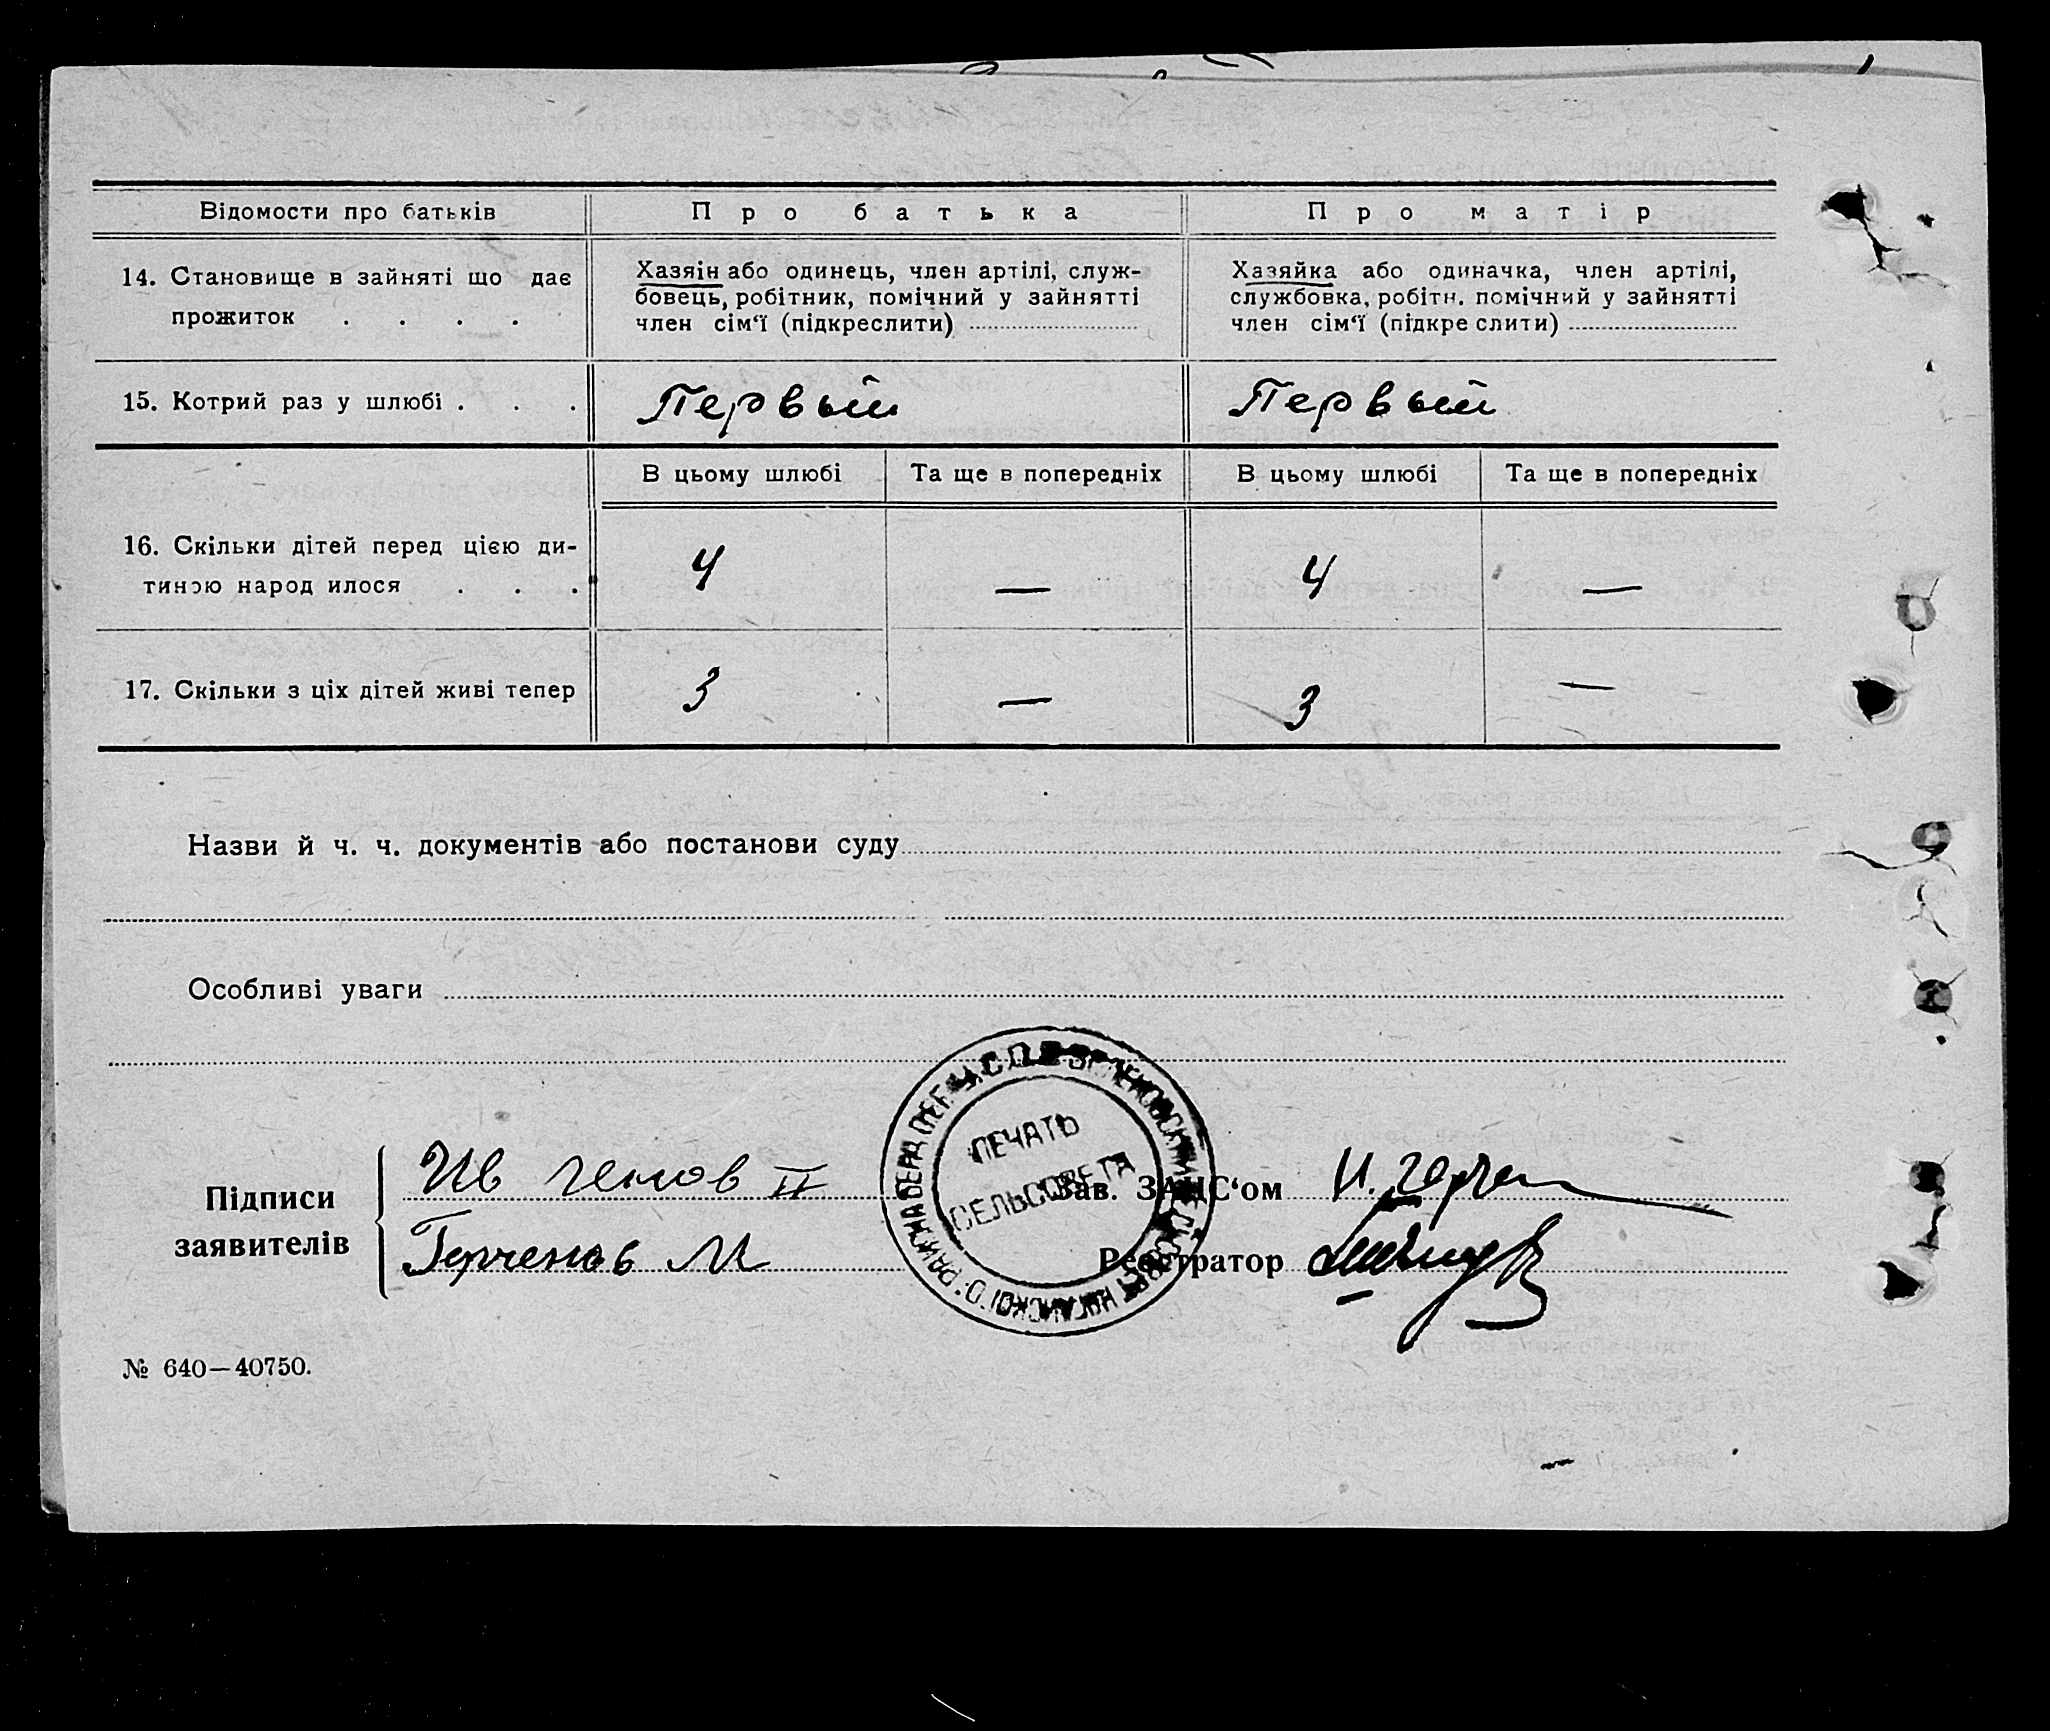 Відомости про батьків Про батька Про матір
14. Становище в зайняті що дає
прожиток . . . .
Хазяін або одинець, член артілі, служ-
бовець, робітник, помічний у зайнятті
член сім‘ї (підкреслити)
Хазяйка або одиначка, член артілі,
службовка, робітн. помічний у зайнятті
член сім‘ї (підкреслити)
15. Котрий раз у шлюбі . . . Первый Первый
В цьому шлюбі Та ще в попередніх В цьому шлюбі Та ще в попередніх
16. Скільки дітей перед цією ди-
тиною народилося . . .
4 — 4 —
17. Скільки з ціх дітей живі тепер 3 — 3 —
Назви й ч. ч. документів або постанови суду
Особливі уваги
ПЕЧАТЬ
СЕЛЬСОВЕТА
Підписи
заявителів
Ив генов II
Зав. ЗАЦС‘ом
Реєстратор
№ 640—40750.